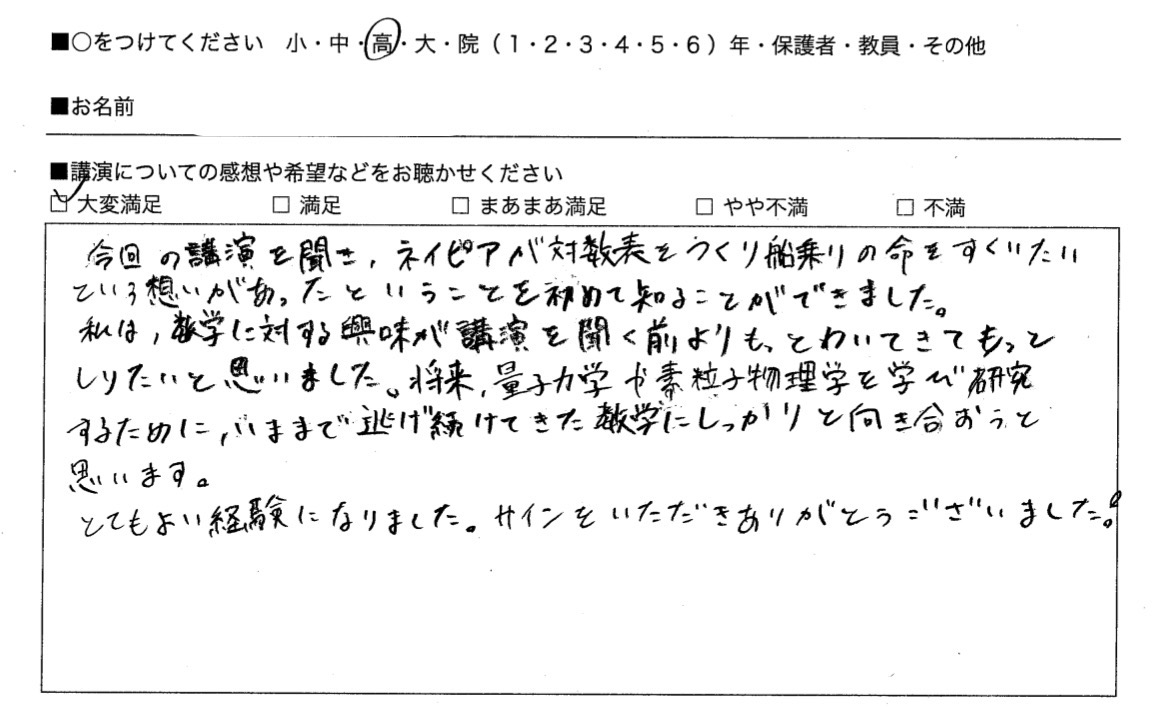 ■○をつけてください 小・中・高・大・院（1・2・3・4・5・6）年・保護者・教員・その他
■お名前
■講演についての感想や希望などをお聴かせください
□ 大変満足 □ 満足 □ まあまあ満足 □ やや不満 □ 不満
今回の講演を聞き，ネイピアが対数表をつくり船乗りの命をすくいたい
ていう想いがあったということを初めて知ることができました。
私は，数学に対する興味が講演を聞く前よりもっとわいてきてもっと
しりたいと思いました。将来，量子力学や素粒子物理学を学び研究
するために，いままで逃げ続けてきた数学にしっかりと向き合おうと
思います。
とてもよい経験になりました。サインをいただきありがとうございました。!